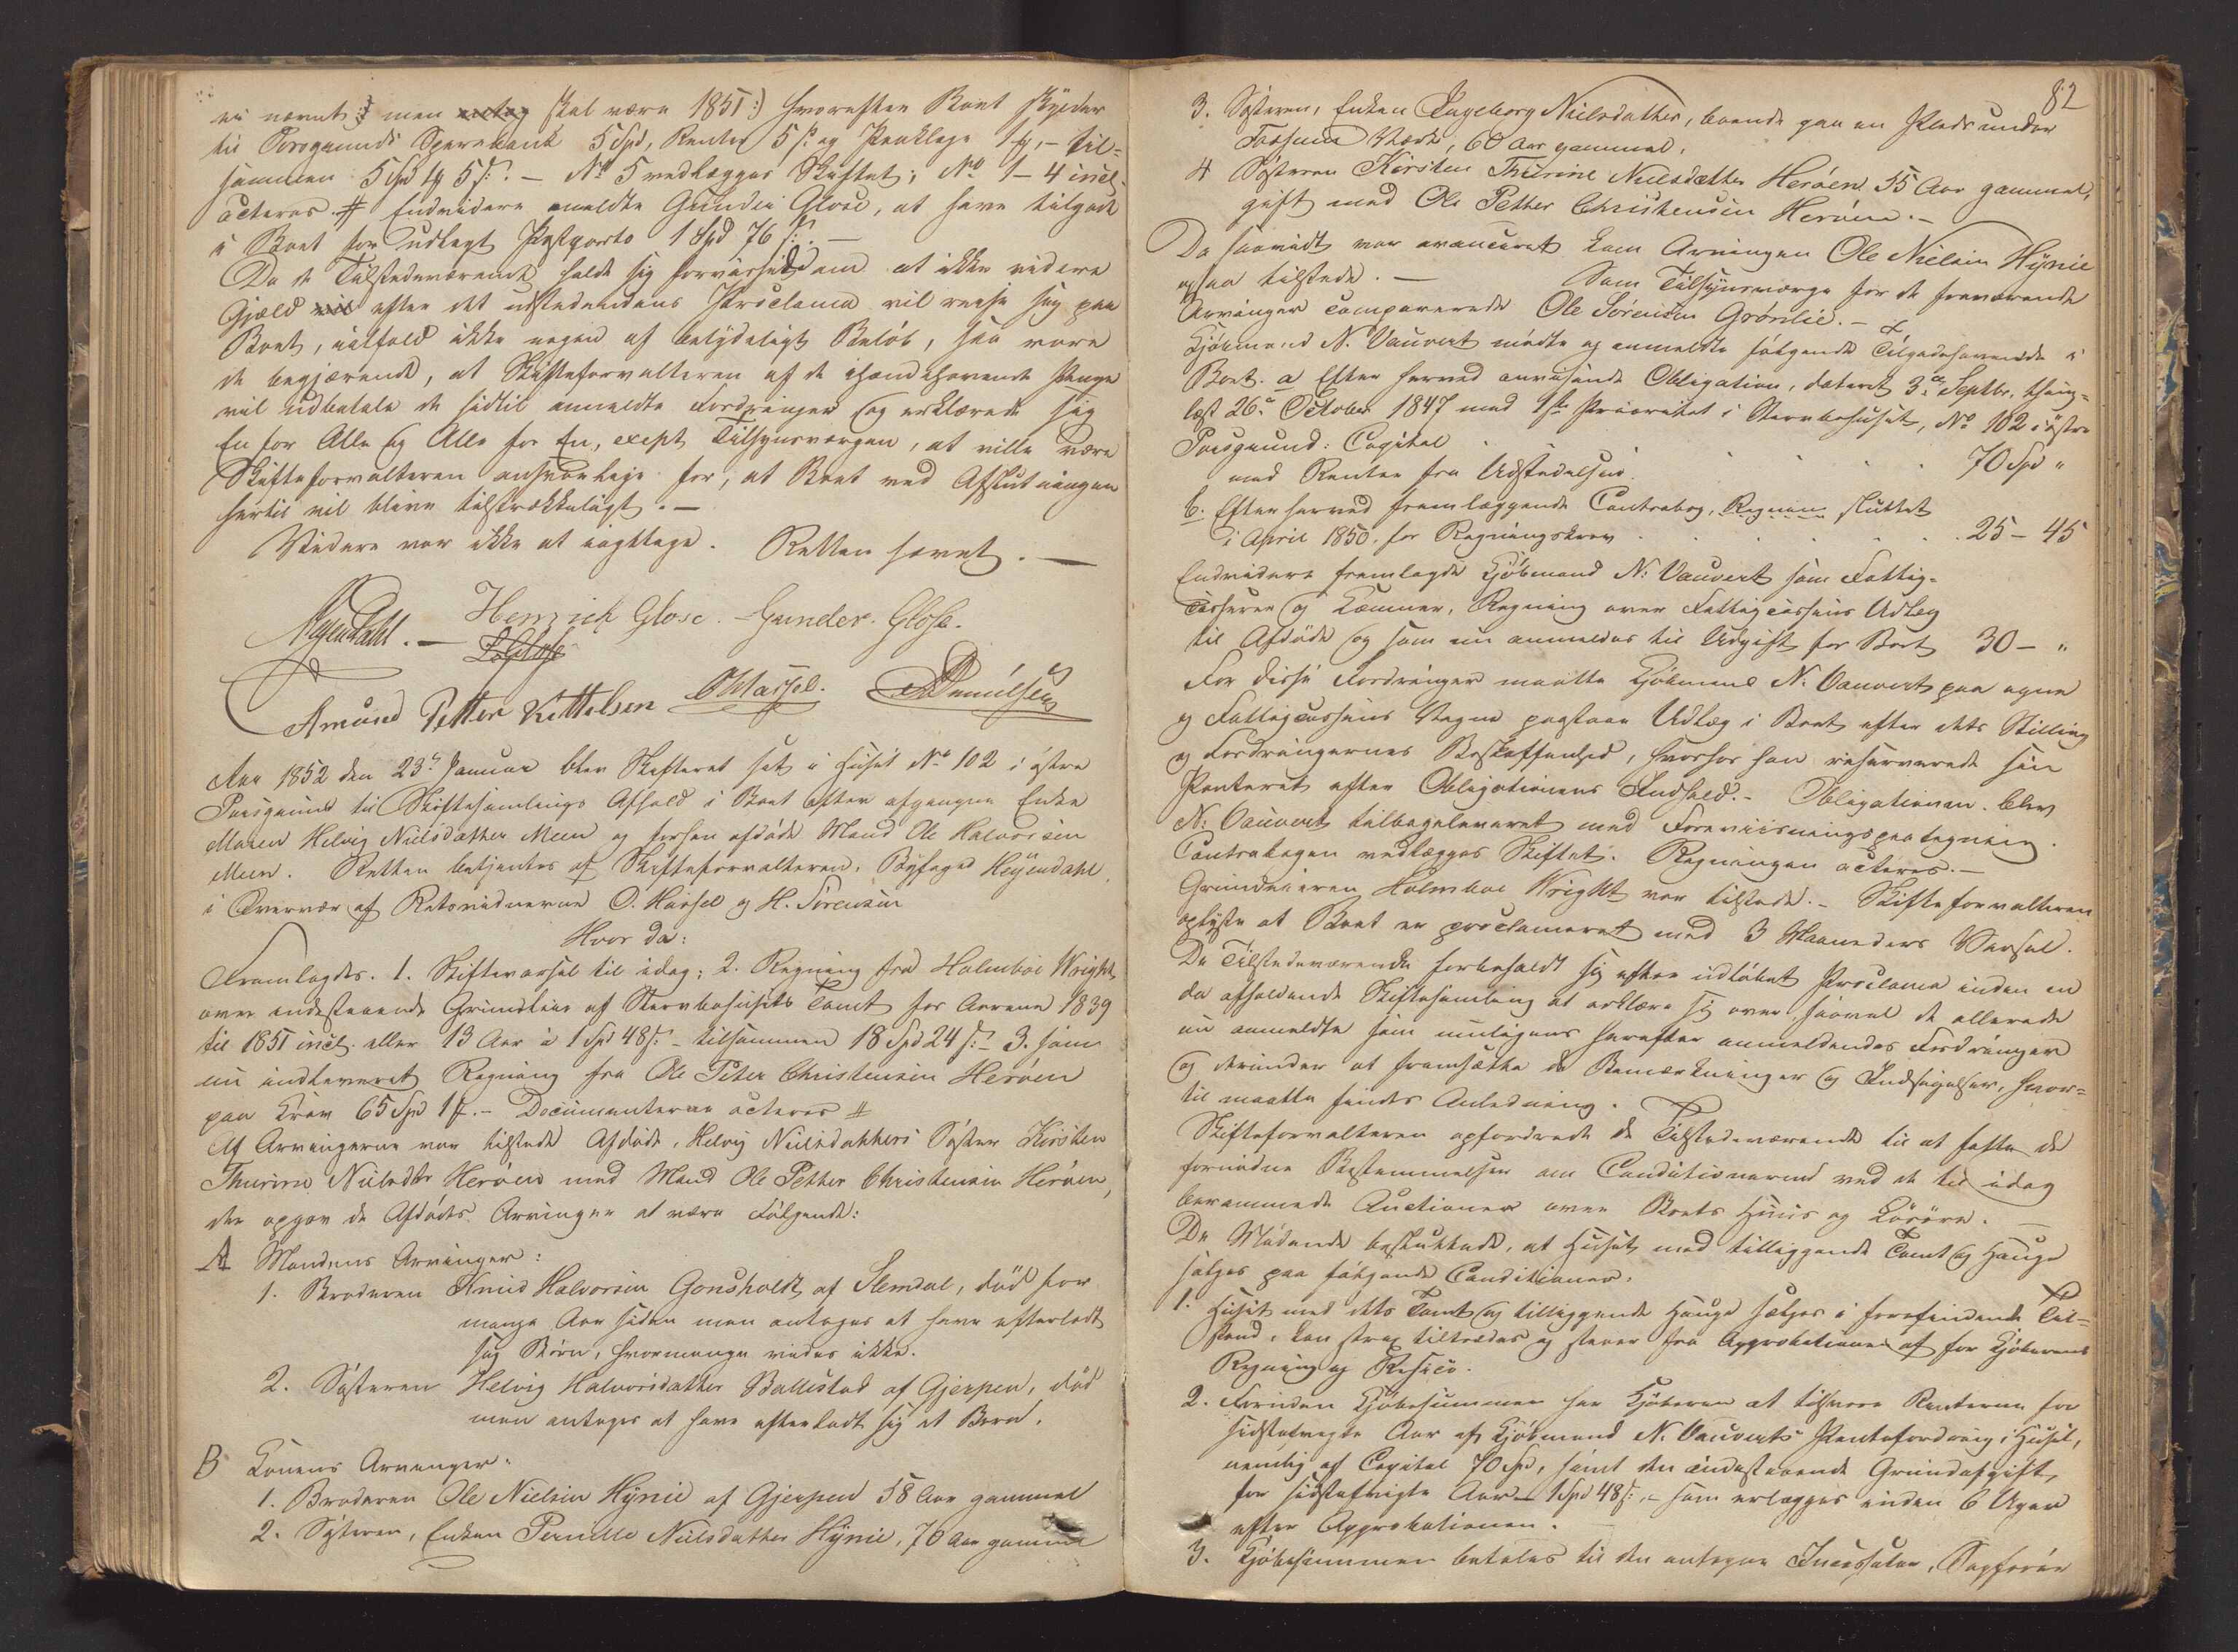 er nævnt; men skal være 1851:) hvorefter Boet skylder
til Porsgrunds Sparebank 5 Spd, Renter 5 s: og Paaklage 1 ℔, – til=
sammen 5 Spd 1 ℔ 5 s:. – No 5 vedlægges Skiftet; No 1–4 incl.
acteres # Endvidere anmeldte Gunder Glose, at have tilgode
i Boet for udlagt Postporto 1 Spd 76 s:. –
Da de Tilstedeværende holdt sig forvissede om at ikke videre
Gjæld efter det udstedendes Proclama vil reise sig paa
Boet, ialfald ikke nogen af betydeligt Beløb, saa vare
de begjærende, at Skifteforvalteren af de ihændehavende Penge
vil udbetale de hidtil anmeldte Fordringer og erklærede sig
En for Alle og Alle for En, exept Tilsynsværgen, at ville være
Skifteforvalteren ansvarlige for, at Boet ved Afslutningen
hertil vil blive tilstrækkeligt. –
Videre var ikke at iagttage. Retten hævet. –
Heyerdahl. – Henrich Glose. – Gunder. Glose.
Amund Petter Kittelsen O Hassel.
Aar 1852 den 23de Januar blev Skifteret sat i Huset No 102 i østre
Porsgrund til Skiftesamlings Afhold i Boet efter afgangne Enke
Maren Helvig Nielsdatter Meen og forhen afdøde Mand Ole Halvorsen
Meen. Retten betjentes af Skifteforvalteren, Byfoged Heyerdahl,
i Overvær af Retsvidnerne O. Hassel og H. Sørensen
Hvor da:
Fremlagdes. 1. Skiftevarsel til idag; 2. Regning fra Holmboe Wright
over indestaaende Grundleie af Stervbohusets Tomt for Aarene 1839
til 1851 incl. eller 13 Aar à 1 Spd 48 s: – tilsammen 18 Spd 24 s: – 3. som
nu indleveret Regning fra Ole Peter Christensen Herøen
paa Krav 65 Spd 1 ℔. – Documenterne acteres #
Af Arvingerne var tilstede Afdøde, Helvig Nielsdatters Søster Kirsten
Thurine Nielsdtr Herøen med Mand Ole Petter Christensen Herøen,
der opgav de Afdødes Arvinger at være Følgende:
A Mandens Arvinger:
1. Broderen Knud Halvorsen Gonsholdt af Slemdal, død for
mange Aar siden men antages at have efterladt
sig Børn, hvormange vides ikke.
2. Søsteren Helvig Halvorsdatter Ballestad af Gjerpen, død
men antages at have efterladt sig et Barn.
B Konens Arvinger:
1. Broderen Ole Nielsen Hynie af Gjerpen 58 Aar gammel
2. Søsteren, Enken Pernille Nielsdatter Hynie, 70 Aar gammel
82
3. Søsteren, Enken Ingeborg Nielsdatter, boende paa en Plads under
Fossum Værk, 60 Aar gammel.
4 Søsteren Kirsten Thurine Nielsdatter Herøen 55 Aar gammel,
gift med Ole Petter Christensen Herøen. –
Da saavidt var avanceret kom Arvingen Ole Nielsen Hynie
ogsaa tilstede. – Som Tilsynsværge for de fraværende
Arvinger comparerede Ole Sørensen Grønlie. –
Kjøbmand N. Vauvert mødte og anmeldte følgende Tilgodehavende i
Boet. a Efter herved anvisende Obligation, dateret 3de Septbr, thing=
læst 26de October 1847 med 1ste Prioritet i Stervbohuset, No 102 i østre
Porsgrund: Capital . . . . . 70 Spd "
med Renter fra Udstedelsen
b. Efter herved fremlæggende Contrabog, Regnen sluttet
i April 1850, for Regningskrav . . . . . 25 – 45
Endvidere fremlagde Kjøbmand N: Vauvert som Fattig=
casserer og Kæmner, Regning over Fattigcassens Udlæg
til Afdøde og som nu anmeldes til Udgift for Boet 30 – "
For disse Fordringer maatte Kjøbmand N. Vauvert paa egne
og Fattigcassens Vegne paastaae Udlæg i Boet efter dets Stilling
og Fordringernes Beskaffenhed, hvorhos han reserverede sin
Panteret efter Obligationens Indhold. – Obligationen blev
N: Vauvert tilbageleveret med Foreviisningspaategning.
Contrabogen vedlægges Skiftet. Regningen acteres. –
Grundeieren Holmboe Wright var tilstede. – Skifteforvalteren
oplyste at Boet er proclameret med 3 Maaneders Varsel.
De Tilstedeværende forbeholdt sig efter udløbet Proclama inden en
da afholdende Skiftesamling at erklære sig over, saavel de allerede
nu anmeldte som muligens herefter anmeldendes Fordringer
og derunder at fremsætte de Bemærkninger og Indsigelser, hvor=
til maatte findes Anledning.
Skifteforvalteren opfordrede de Tilstedeværende til at fatte de
fornødne Bestemmelser om Conditionerne ved de til idag
berammede Auctioner over Boets Huus og Løsøre. –
De Mødende besluttede, at Huset med tilliggende Tomt og Hauge
sælges paa følgende Conditioner.
1. Huset med dets Tomt og tilliggende Hauge sælges i forefindende Til=
stand, kan strax tiltrædes og staaer fra Approbationen af for Kjøberens
Regning og Resico.
2. Foruden Kjøbesummen har Kjøberen at tilsvare Renterne for
sidstafvigte Aar af Kjøbmand N. Vauverts Pantefordring i Huset,
nemlig af Capital 70 Spd, samt den indestaaende Grundafgift
for sidstafvigte Aar – 1 Spd 48 s: – som erlægges inden 6 Uger
efter Approbationen.
3. Kjøbesummen betales til den antagne Incassator, Sagfører